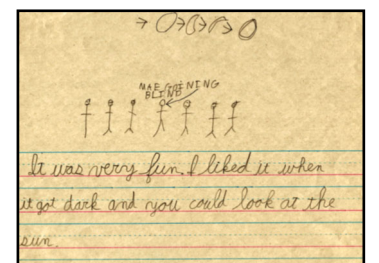 MAE
BLIND
It was very fun. I liked it when
it got dark and you could look at the
sun.